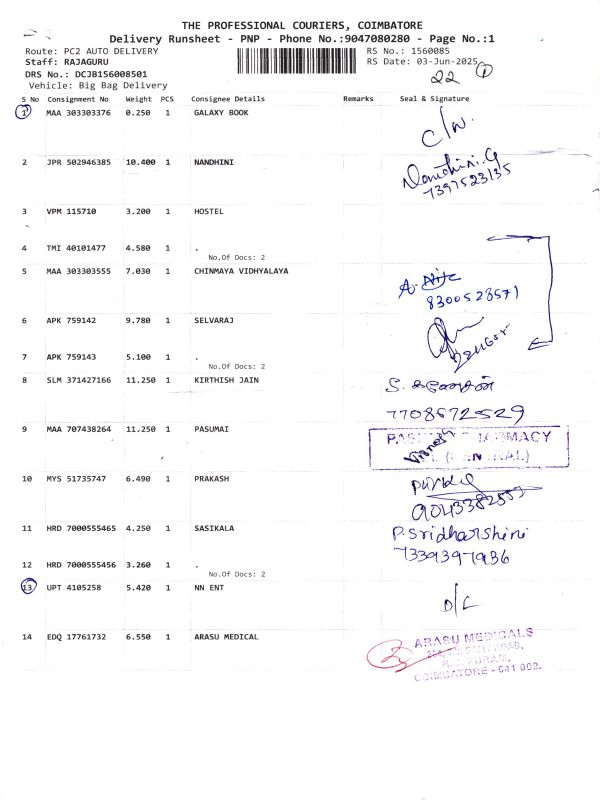 THE PROFESSIONAL COURIERS, COIMBATORE
Delivery Runsheet - PNP - Phone No.:9047080280 - Page No.:1
Route: PC2 AUTO DELIVERY
RS No.: 1560085
Staff: RAJAGURU
RS Date: 03-Jun-2025
DRS No.: DCJB156008501
22 1
Vehicle: Big Bag Delivery
S No Consignment No Weight PCS Consignee Details Remarks Seal & Signature
1 MAA 303303376 0.250 1 GALAXY BOOK
C/N.
2 JPR 502946385 10.400 1 NANDHINI
Nandhini.G
7397523135
3 VPM 115710 3.200 1 HOSTEL
4 TMI 40101477 4.580 1 .
No.Of Docs: 2
5 MAA 303303555 7.030 1 CHINMAYA VIDHYALAYA
8300528571
6 APK 759142 9.780 1 SELVARAJ
7 APK 759143 5.100 1 .
No.Of Docs: 2
8 SLM 371427166 11.250 1 KIRTHISH JAIN
7708672529
9 MAA 707438264 11.250 1 PASUMAI
10 MYS 51735747 6.490 1 PRAKASH
11 HRD 7000555465 4.250 1 SASIKALA
P.Sridharshini
7339397936
12 HRD 7000555456 3.260 1 .
No.Of Docs: 2
13 UPT 4105258 5.420 1 NN ENT
D/L
14 EDQ 17761732 6.550 1 ARASU MEDICAL
ARASU MEDICALS
R.S. PURAM,
COIMBATORE - 641 002.